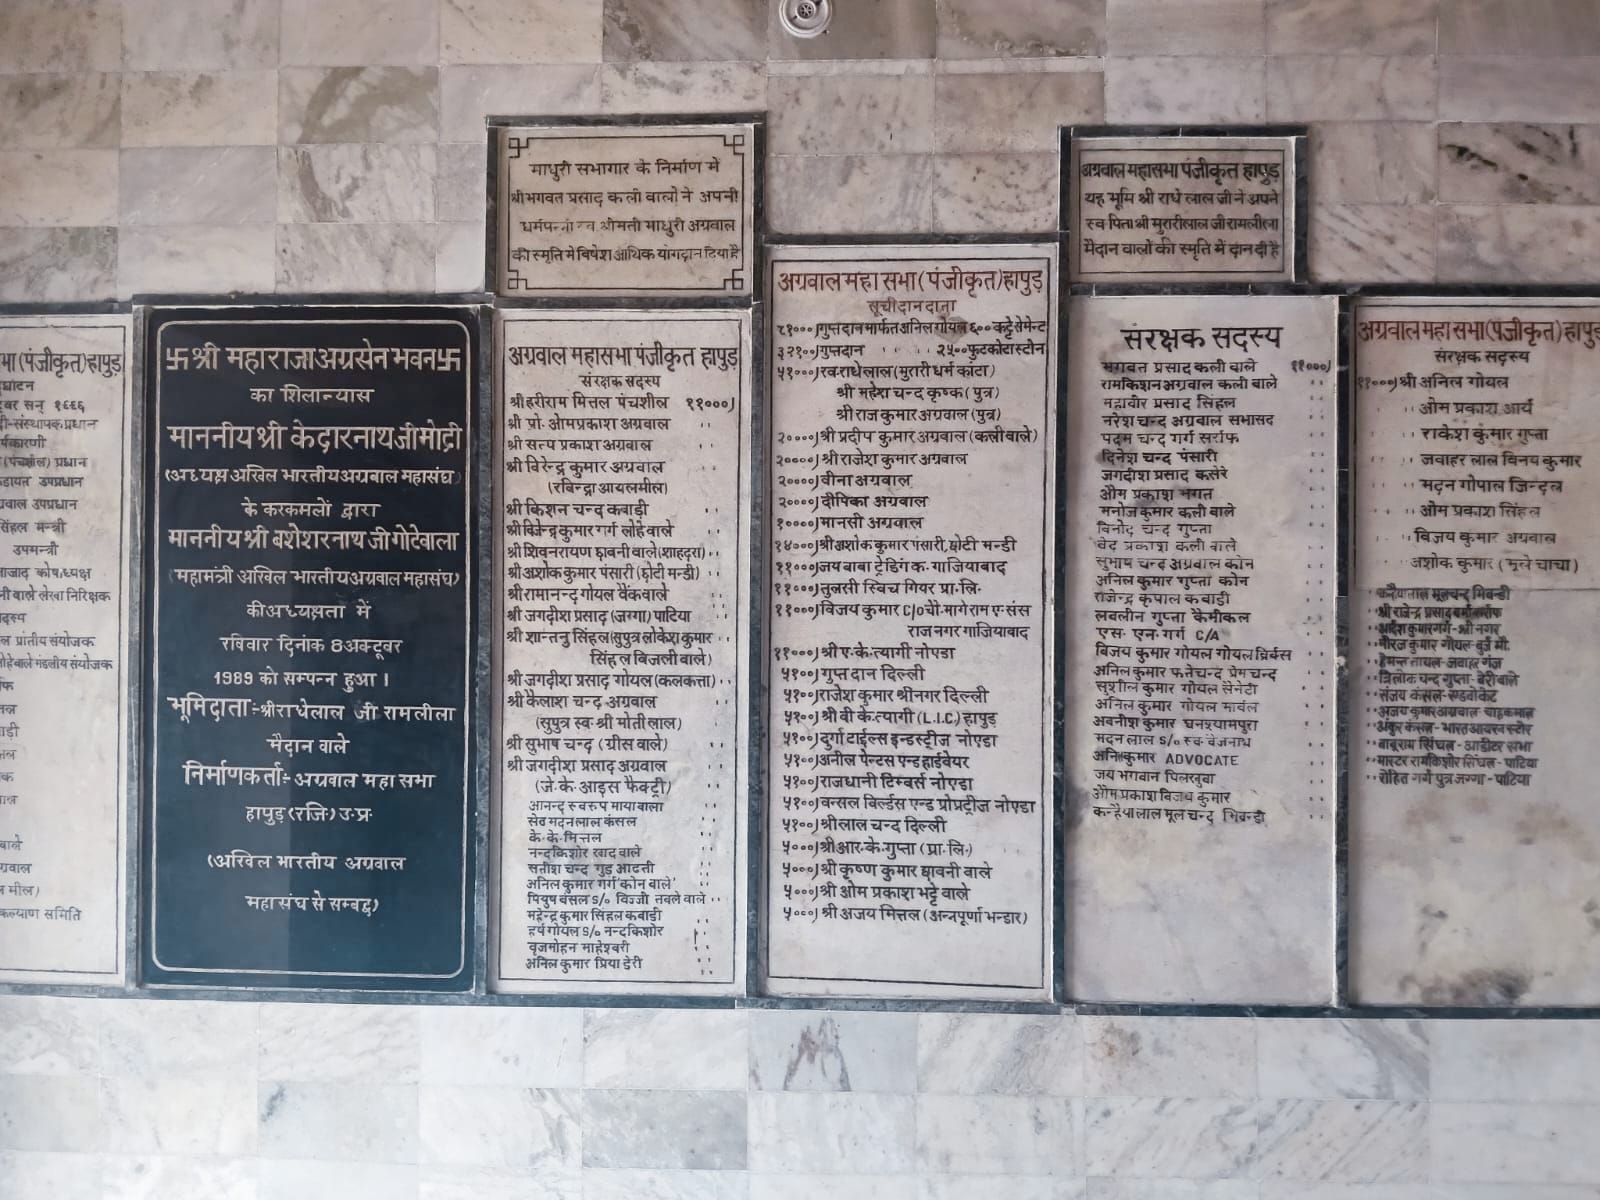 भा(पंजीकृत)हापुड़
घाटन
बर सन् १९९६
दी-संस्थापक प्रधान
र्यकारणी
(पंचशील) प्रधान
उपप्रधान
ग्रवाल उपप्रधान
सिंहल मन्त्री
उपमन्त्री
कोषाध्यक्ष
नी वाले लेखा निरिक्षक
दस्य
ल प्रांतीय संयोजक
लोहेवाले मंडलीय संयोजक
वाले
ग्रवाल
मील)
कल्याण समिति
卐 श्री महाराजा अग्रसेन भवन 卐
का शिलान्यास
माननीय श्री केदारनाथ जी मोदी
(अध्यक्ष अखिल भारतीय अग्रवाल महासंघ)
के करकमलों द्वारा
माननीय श्री बशेशरनाथ जी गोटेवाला
(महामंत्री अखिल भारतीय अग्रवाल महासंघ)
की अध्यक्षता में
रविवार दिनांक 8 अक्टूबर
1989 को सम्पन्न हुआ ।
भूमिदाता:-श्री राधेलाल जी रामलीला
मैदान वाले
निर्माणकर्ता:- अग्रवाल महा सभा
हापुड़ (रजि॰) उ॰प्र॰
(अखिल भारतीय अग्रवाल
महासंघ से सम्बद्ध)
माधुरी सभागार के निर्माण में
श्री भगवत प्रसाद कली वालों ने अपनी
धर्मपत्नी स्व श्रीमती माधुरी अग्रवाल
की स्मृति में विषेश आर्थिक योगदान दिया है
अग्रवाल महासभा पंजीकृत हापुड़
संरक्षक सदस्य
श्री हरीराम मित्तल पंचशील ११०००)
श्री प्रो॰ ओमप्रकाश अग्रवाल ,,
श्री सत्य प्रकाश अग्रवाल ,,
श्री विरेन्द्र कुमार अग्रवाल ,,
(रबिन्द्रा आयलमील)
श्री किशन चन्द कबाड़ी ,,
श्री विजेन्द्र कुमार गर्ग लोहे वाले ,,
श्री शिवनरायण छावनी वाले (शाहदरा) ,,
श्री अशोक कुमार पंसारी (छोटी मन्डी) ,,
श्री रामानन्द गोयल बैंक वाले ,,
श्री जगदीश प्रसाद (जग्गा) पाटिया ,,
श्री शान्तनु सिंहल (सुपुत्र लोकेश कुमार ,,
सिंहल बिजली वाले)
श्री जगदीश प्रसाद गोयल (कलकत्ता) ,,
श्री कैलाश चन्द अग्रवाल ,,
(सुपुत्र स्व॰ श्री मोती लाल)
श्री सुभाष चन्द (ग्रीस वाले) ,,
श्री जगदीश प्रसाद अग्रवाल ,,
(जे॰के॰ आइस फैक्ट्री)
आनन्द स्वरुप मायावाला ,,
सेव मदनलाल कंसल ,,
के॰ के॰ मित्तल ,,
नन्दकिशोर खाद वाले ,,
सतीश चन्द गुड़ आढती ,,
अनिल कुमार गर्ग 'कोन वाले' ,,
पियुष बंसल S/० विज्जी तबले वाले ,,
महेन्द्र कुमार सिंहल कबाडी ,,
हर्ष गोयल S/० नन्दकिशोर ,,
बृजमोहन माहेश्वरी ,,
अनिल कुमार प्रिया डेरी ,,
अग्रवाल महा सभा (पंजीकृत) हापुड़
सूची दान दाता
८१०००) गुप्तदान मार्फत अनिल गोयल ६०० कट्टे सेमेन्ट
३२१००) गुप्तदान ,, ,, २५०० फुट कोटा स्टोन
५१०००) स्व॰ राधेलाल (मुरारी धर्म कांटा)
श्री महेश चन्द कृष्क (पुत्र)
श्री राज कुमार अग्रवाल (पुत्र)
२००००) श्री प्रदीप कुमार अग्रवाल (कली वाले)
२००००) श्री राजेश कुमार अग्रवाल
२००००) वीना अग्रवाल
२००००) दीपिका अग्रवाल
१००००) मानसी अग्रवाल
१४०००) श्री अशोक कुमार पंसारी, छोटी मन्डी
११०००) जय बाबा ट्रेडिंग क॰ गाजियाबाद
११०००) तुलसी स्विच गियर प्रा॰ लि॰
११०००) विजय कुमार C/o चौ॰ मागे राम एन्ड संस
राज नगर गाजियाबाद
११०००) श्री ए॰ के॰ त्यागी नोएडा
५१००) गुप्त दान दिल्ली
५१००) राजेश कुमार श्रीनगर दिल्ली
५१००) श्री वी के॰ त्यागी (L.I.C.) हापुड़
५१००) दुर्गा टाईल्स इन्डस्ट्रीज नोएडा
५१००) अनील पेन्टस एन्ड हाईवेयर
५१००) राजधानी टिम्बर्स नोएडा
५१००) वन्सल विर्ल्डस एन्ड प्रोप्रट्रीज नोएडा
५१००) श्री लाल चन्द दिल्ली
५०००) श्री आर॰ के॰ गुप्ता (प्रा॰ लि॰)
५०००) श्री कृष्ण कुमार छावनी वाले
५०००) श्री ओम प्रकाश भट्टे वाले
५०००) श्री अजय मित्तल (अन्नपूर्णा भन्डार)
अग्रवाल महासभा पंजीकृत हापुड़
यह भूमि श्री राधे लाल जी ने अपने
स्व॰ पिता श्री मुरारीलाल जी रामलीला
मैदान वालों की स्मृति में दान दी है
संरक्षक सदस्य
भगवत प्रसाद कली वाले ११०००)
रामकिशन अग्रवाल कली वाले ,,
महावीर प्रसाद सिंहल ,,
नरेश चन्द अग्रवाल सभासद ,,
पदम चन्द गर्ग सर्राफ ,,
दिनेश चन्द पंसारी ,,
जगदीश प्रसाद कसेरे ,,
ओम प्रकाश भगत ,,
मनोज कुमार कली वाले ,,
विनोद चन्द गुप्ता ,,
वेद प्रकाश कली वाले ,,
सुभाष चन्द अग्रवाल कोन ,,
अनिल कुमार गुप्ता कोन ,,
राजेन्द्र कृपाल कबाड़ी ,,
लवलीन गुप्ता कैमीकल ,,
एस॰ एन॰ गर्ग C/A ,,
विजय कुमार गोयल गोयल ब्रिक्स ,,
अनिल कुमार फतेचन्द प्रेम चन्द ,,
सुशील कुमार गोयल सेनेट्री ,,
अनिल कुमार गोयल मार्वल ,,
अवनीश कुमार घनश्यामपुरा ,,
मदन लाल S/० स्व॰ बैजनाथ ,,
अनिल कुमार ADVOCATE ,,
जय भगवान पिलखुवा ,,
ओम प्रकाश विजय कुमार ,,
कन्हैयालाल मूल चन्द भिवन्डी ,,
अग्रवाल महा सभा (पंजीकृत) हापुड़
संरक्षक सदस्य
११०००) श्री अनिल गोयल
,, ,, ओम प्रकाश आर्य
,, ,, राकेश कुमार गुप्ता
,, ,, जवाहर लाल विनय कुमार
,, ,, मदन गोपाल जिन्दल
,, ,, ओम प्रकाश सिंहल
,, ,, विजय कुमार अग्रवाल
,, ,, अशोक कुमार (मूले चाचा)
,, कन्हैयालाल मूलचन्द भिवन्डी
,, श्री राजेन्द्र प्रसाद वर्मा सर्राफ
,, आदेश कुमार गर्ग-श्री नगर
,, नीरज कुमार गोयल-
,, हेमन्त तायल-जवाहर गंज
,, त्रिलोक चन्द गुप्ता-बेरी वाले
,, संजय कंसल-एडवोकेट
,, अजय कुमार अग्रवाल-
,, अंकुर कंसल-भारत आयरन स्टोर
,, बाबूराम सिंघल-आडीटर सभा
,, मास्टर रामकिशोर सिंघल-पाटिया
,, रोहित गर्ग पुत्र जग्गा-पाटिया